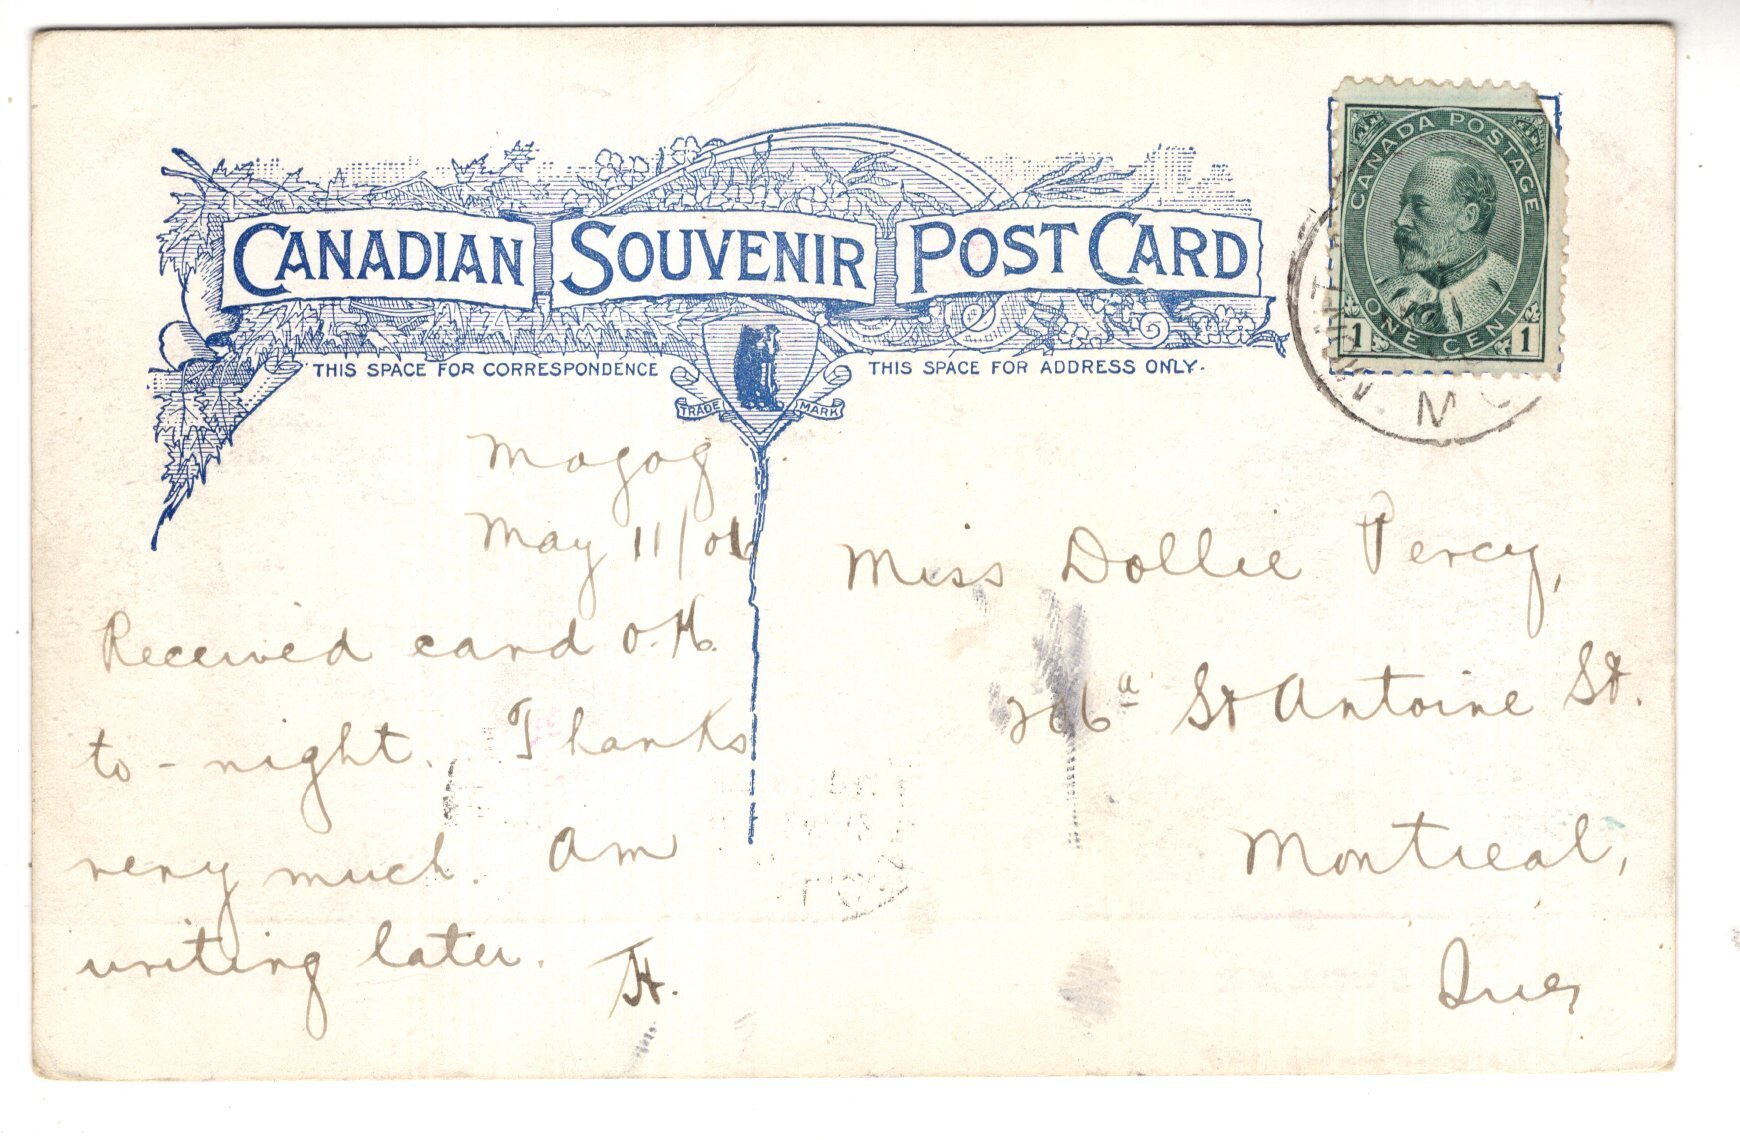 CANADIAN SOUVENIR POST CARD
THIS SPACE FOR CORRESPONDENCE
THIS SPACE FOR ADDRESS ONLY.
TRADE MARK
CANADA POSTAGE
ONE CENT
1 1
MONTREAL
Magog
May 11/06
Received card O.K.
to-night. Thanks
very much. Am
writing later.
H.
Miss Dollie Percy,
206a St Antoine St.
Montreal,
Que,